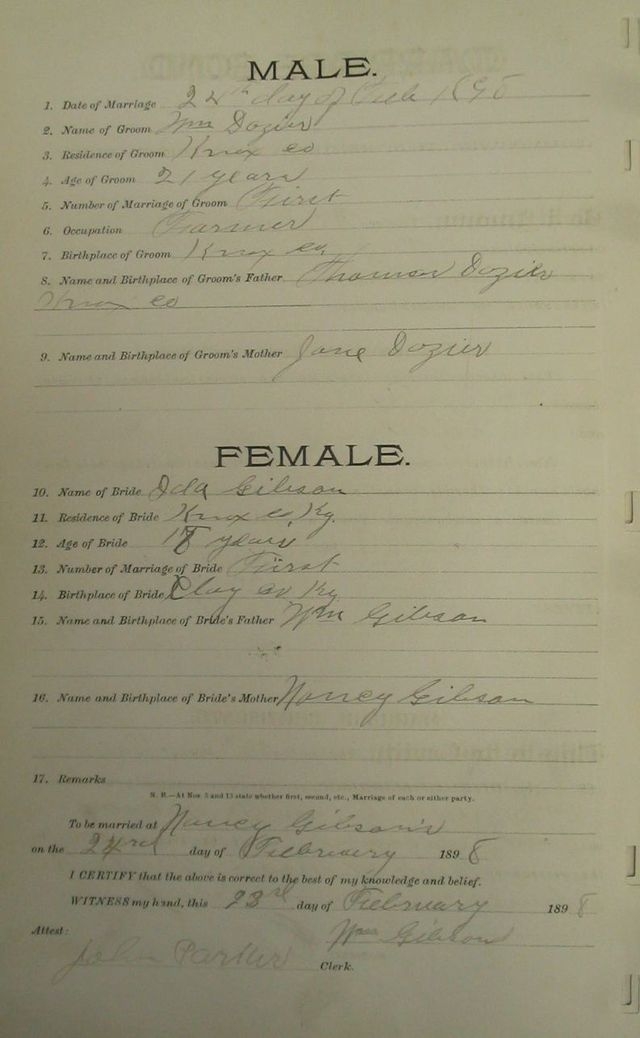 MALE.
1. Date of Marriage 24th day of Feb 1898
2. Name of Groom Wm Dozier
3. Residence of Groom Knox co
4. Age of Groom 21 years
5. Number of Marriage of Groom First
6. Occupation Farmer
7. Birthplace of Groom Knox co,
8. Name and Birthplace of Groom's Father Thomas Dozier
Knox co
9. Name and Birthplace of Groom's Mother Jane Dozier
FEMALE.
10. Name of Bride Ida Gibson
11. Residence of Bride Knox co, Ky.
12. Age of Bride 18 years
13. Number of Marriage of Bride First
14. Birthplace of Bride Clay co Ky
15. Name and Birthplace of Bride's Father Wm Gibson
16. Name and Birthplace of Bride's Mother Nancy Gibson
17. Remarks
N. B.—At Nos 5 and 13 state whether first, second, etc., Marriage of each or either party.
To be married at Nancy Gibson's
on the day of February 1898
I CERTIFY that the above is correct to the best of my knowledge and belief.
WITNESS my hand, this 23rd day of February 1898
Attest: Wm Gibson
John Parker Clerk.